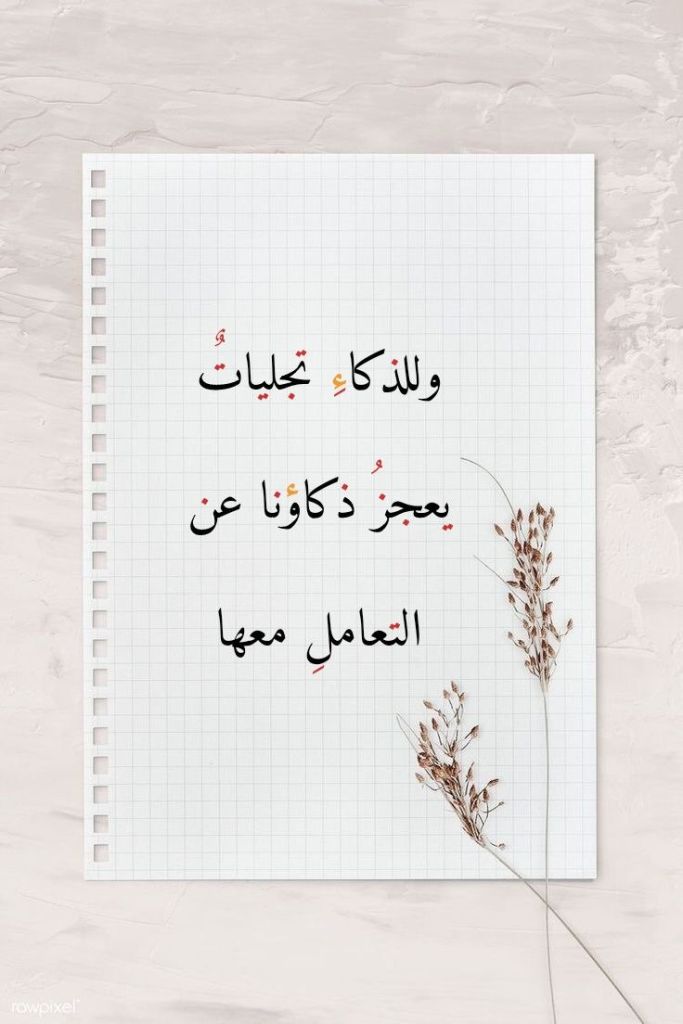 وللذكاءِ تجلياتٌ
يعجزُ ذكاؤنا عن
التعاملِ معها
rawpixel